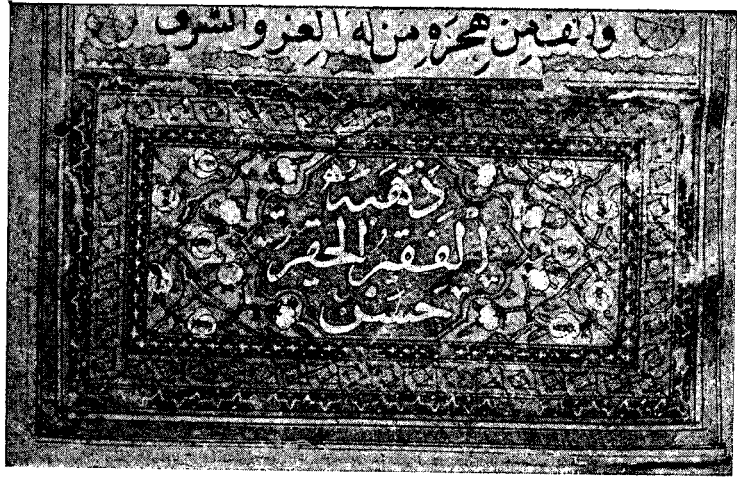 والف من هجرة من له العز والشرف
ذهبه
الفقير الحقير
حسن